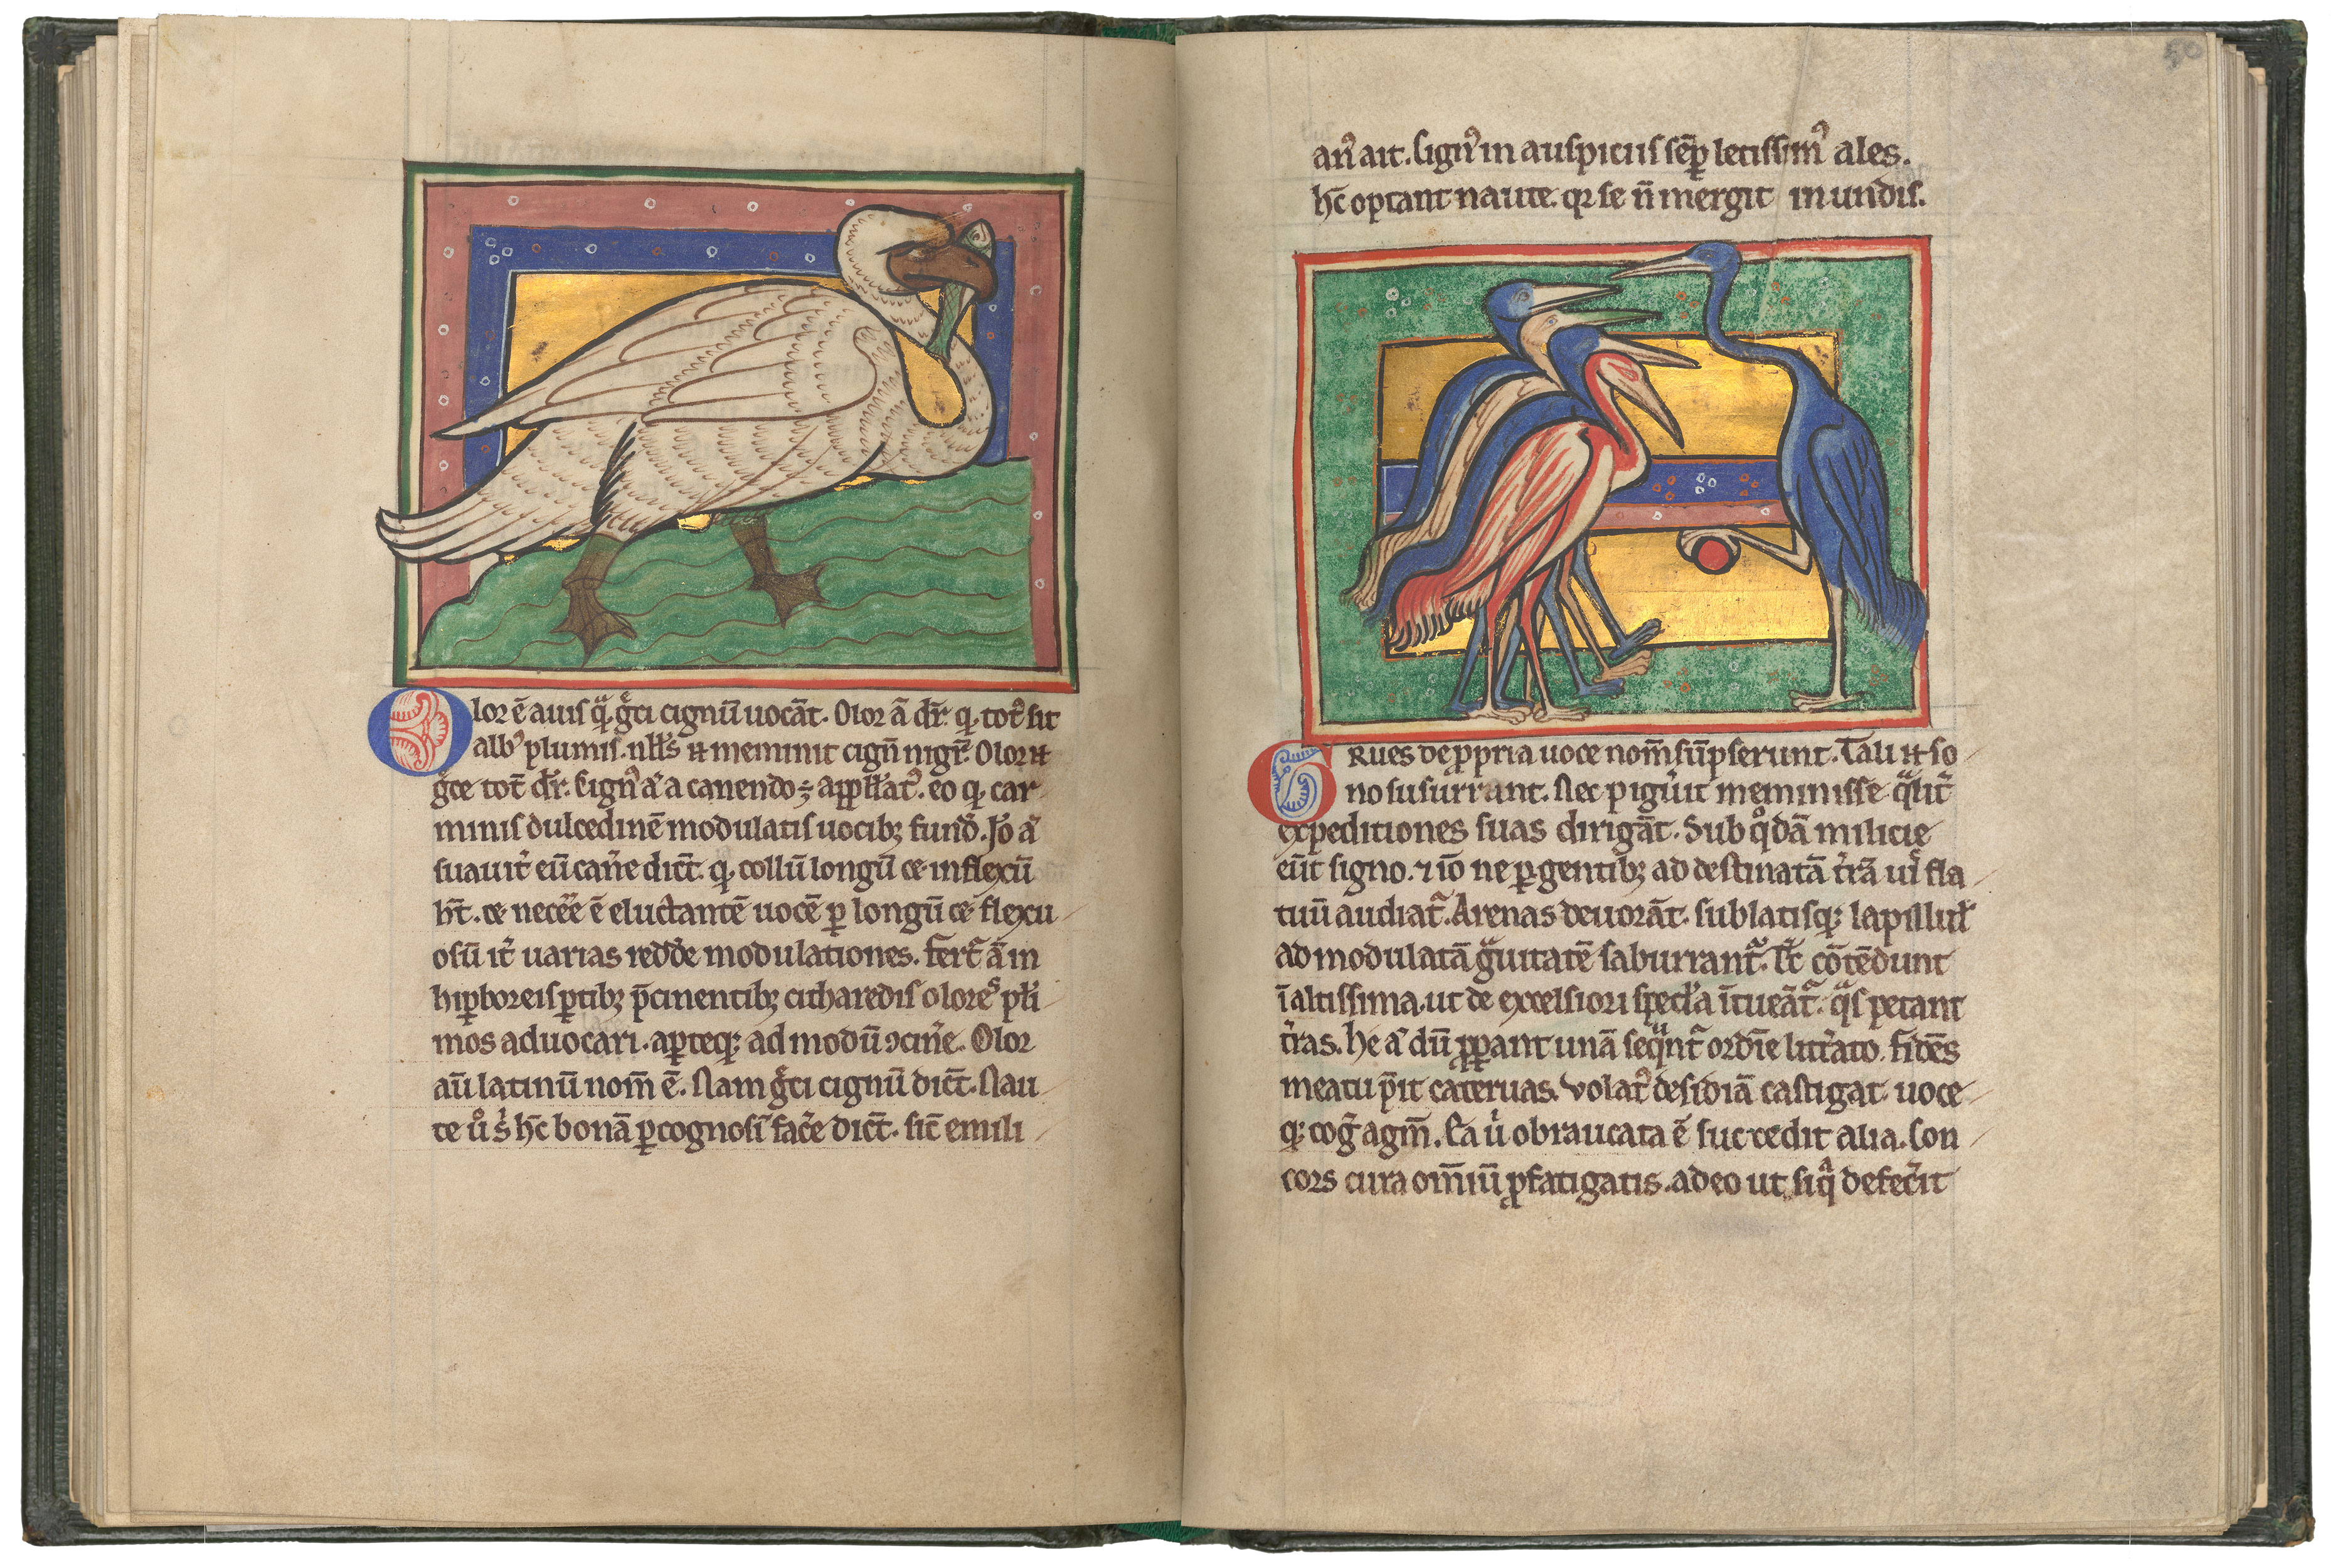 Olor ē auis q̄ g̊ci cignū uocāt. Olor ā dr̄ ꝙ tot᷒ sit
albꝰ plumis. nłłs ⁊ meminit cignū nigrū. Olor ⁊
g̊ce tot᷒ dr̄. Cignꝰ ā a canendo ÷ appłłatꝰ. eo ꝙ car
minis dulcedinē modulatis uocibꝫ fund̄. Io ā
suauit̄ eū can̄e dict̄. ꝙ collū longū ⁊ inflexū
ht̄. ⁊ necēē ē eluctantē uocē ꝑ longū ⁊ flexu
osū it̄ uarias redd̄e modulationes. Fert̄ ā in
hiꝑboreis ꝑtibꝫ p̄cinentibꝫ citharedis olores płi
mos aduocari. aꝑteqꝫ ad modū ɔcin̄e. Olor
aū latinū nom̄ ē. Nam g̊ci cignū dict̄. Nau
te ů s̄ hc̄ bonā ꝑcognosī fac̄e dict̄. sic̄ emili
50
anꝰ ait. Cignꝰ in auspiciis sēꝑ letissimꝰ ales.
hc̄ optant naute. qr se ñ mergit in undis.
Grues de ꝓpria uoce nom̄ sūpserunt. Tali ⁊ so
no susurrant. Nec pigūit meminisse q̄lit̄
expeditiones suas dirigāt. Sub q̊dā milicie
eūt signo. ⁊ iō ne ꝑgentibꝫ ad destinatā t̄rā ui fla
tuū audiat̄. Arenas deuorāt. sublatisqꝫ lapilluł
ad modulatā g̊uitatē saburrant̄. Tc̄ cōtēdunt
ī altissima. ut de excelsiori specła ītueāt̄. q̄s petant
t̄ras. he ā dū ꝓꝑant unā seqnt̄ ordīe litt̄ato. Fidēs
meatu p̄it cateruas. Volatꝰ desidiā castigat. uoce
qꝫ cog̊ agm̄. Ea ů obraucata ē succedit alia. Con
cors cura om̄iū ꝓ fatigatis. adeo ut siq̄ defec̄it